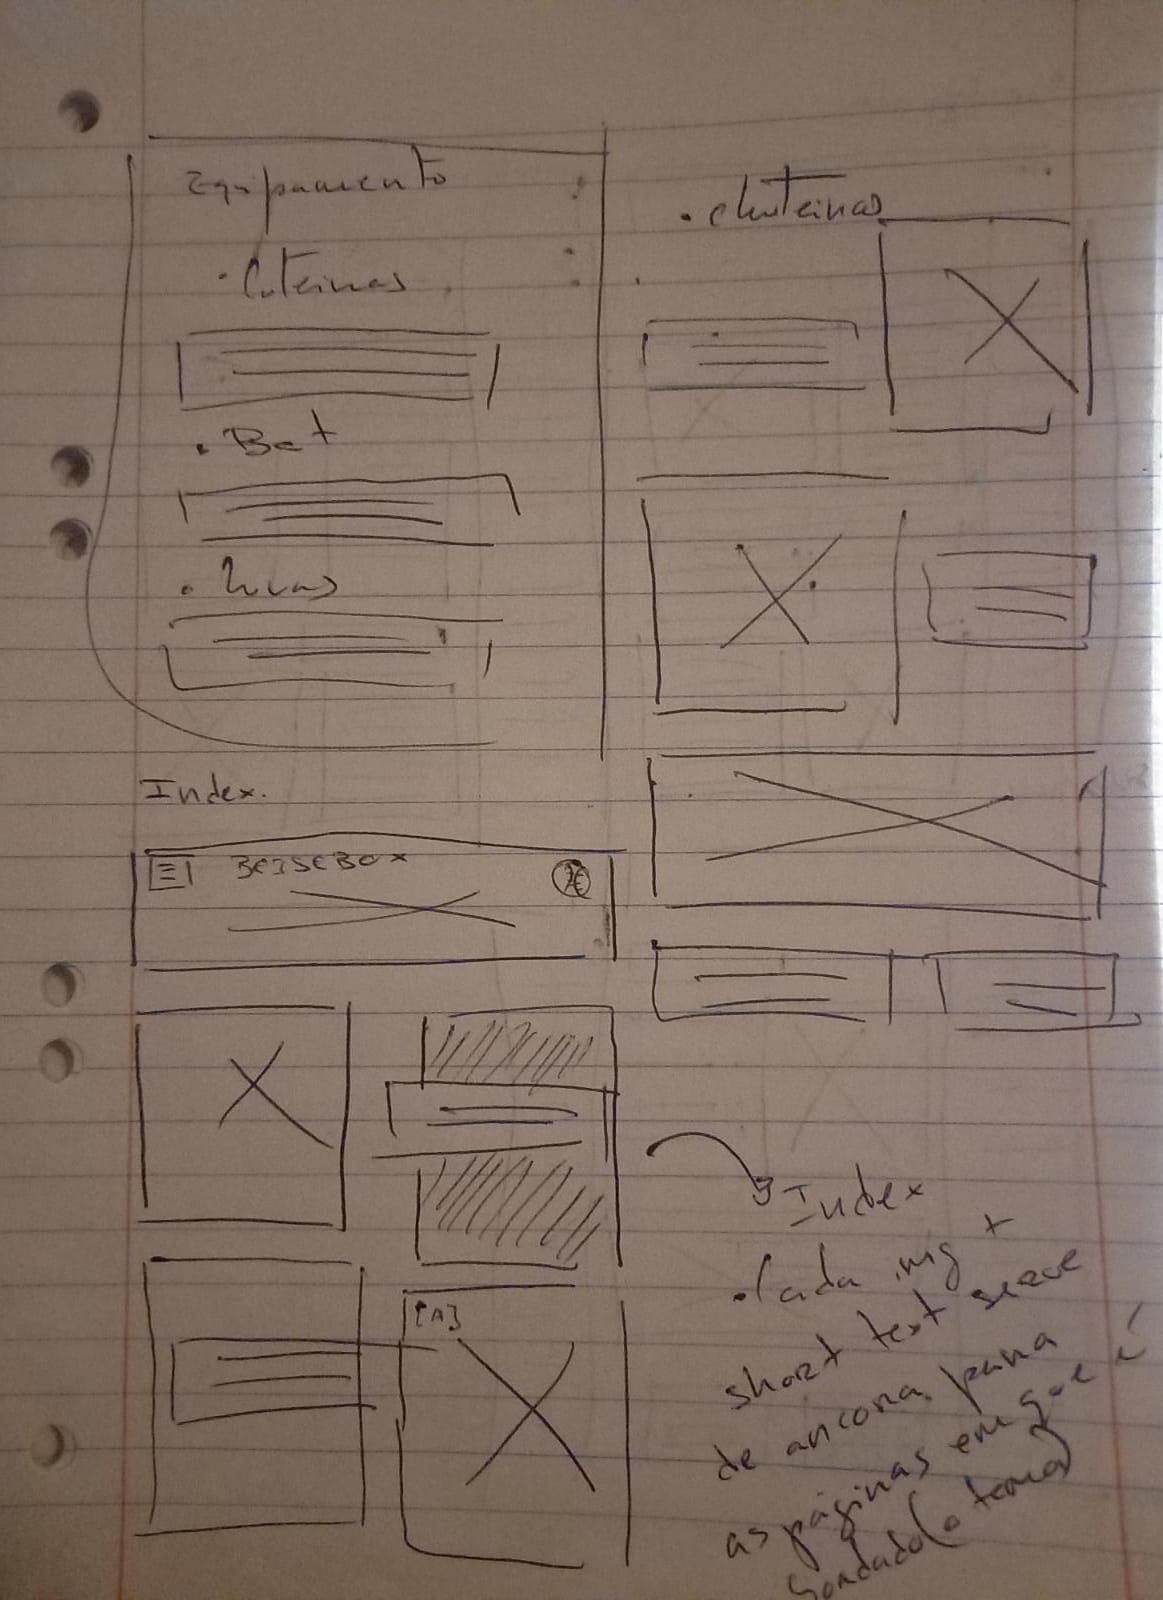 Equipamento
• Cuteinas
• Bat
• Luvas
• chuteinas
Index.
BeiseBox
[A]
Index
• Cada img +
short text serve
de ancora para
as páginas em que é
(o tema)